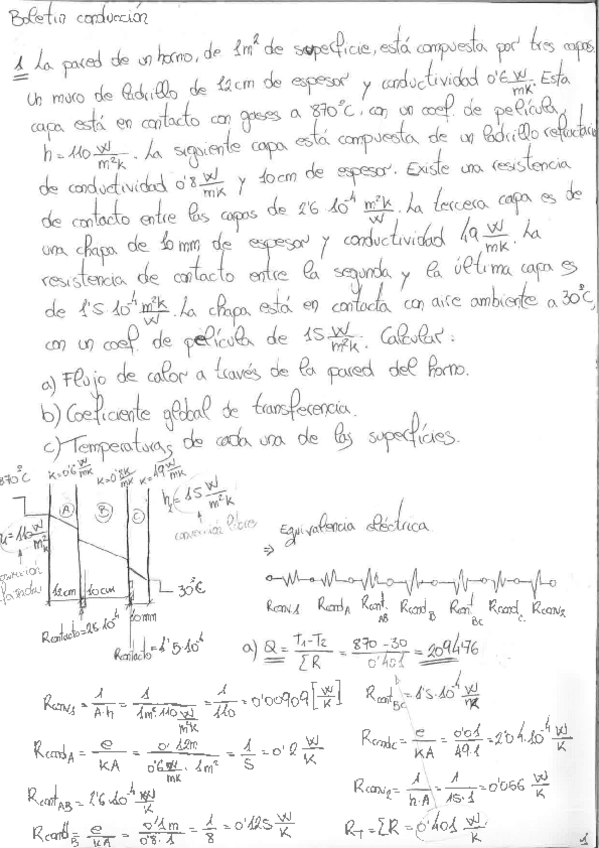 Boletín conducción
1 La pared de un horno, de 1m² de superficie, está compuesta por tres capas.
Un muro de ladrillo de 12cm de espesor y conductividad 0'6 W/mK. Esta
capa está en contacto con gases a 870°C, con un coef. de película,
h=110 W/m²K. La siguiente capa está compuesta de un ladrillo refractario
de conductividad 0'8 W/mK y 10cm de espesor. Existe una resistencia
de contacto entre las capas de 2'6 10⁻⁴ m²K/W. La tercera capa es de
una chapa de 10mm de espesor y conductividad 49 W/mK. La
resistencia de contacto entre la segunda y la última capa es
de 1'5 10⁻⁴ m²K/W. La chapa está en contacta con aire ambiente a 30°C,
con un coef. de película de 15 W/m²K. Calcular:
a) Flujo de calor a través de la pared del horno.
b) Coeficiente global de transferencia.
c) Temperaturas de cada una de las superfícies.
870°C K=0'6 W/mK K=0'8 W/mK K=49 W/mK
A B C h₂=15 W/m²K
h=110 W/m²K
convección libre
convección forzada
12cm 10cm 30°C
10mm
Rcontacto=2'6 10⁻⁴
Rcontacto=1'5·10⁻⁴
Equivalencia eléctrica
⇒
Rconv1 RcondA Rcont AB Rcond B Rcont BC Rcond C Rconv2
a) Q = T1-T2/ΣR = 870-30/0'401 = 2094'76
Rconv1 = 1/A·h = 1/1m²·110 W/m²K = 1/110 = 0'00909 [W/K]
Rcont BC = 1'5·10⁻⁴ W/K
RcondA = e/KA = 0'12m/0'6 W/mK · 1m² = 1/5 = 0'2 W/K
Rcondc = e/KA = 0'01/49·1 = 2'04·10⁻⁴ W/K
Rcont AB = 2'6·10⁻⁴ W/K
Rconv2 = 1/h·A = 1/15·1 = 0'066 W/K
Rcond B = e/KA = 0'1m/0'8·1 = 1/8 = 0'125 W/K
RT = ΣR = 0'401 W/K
1